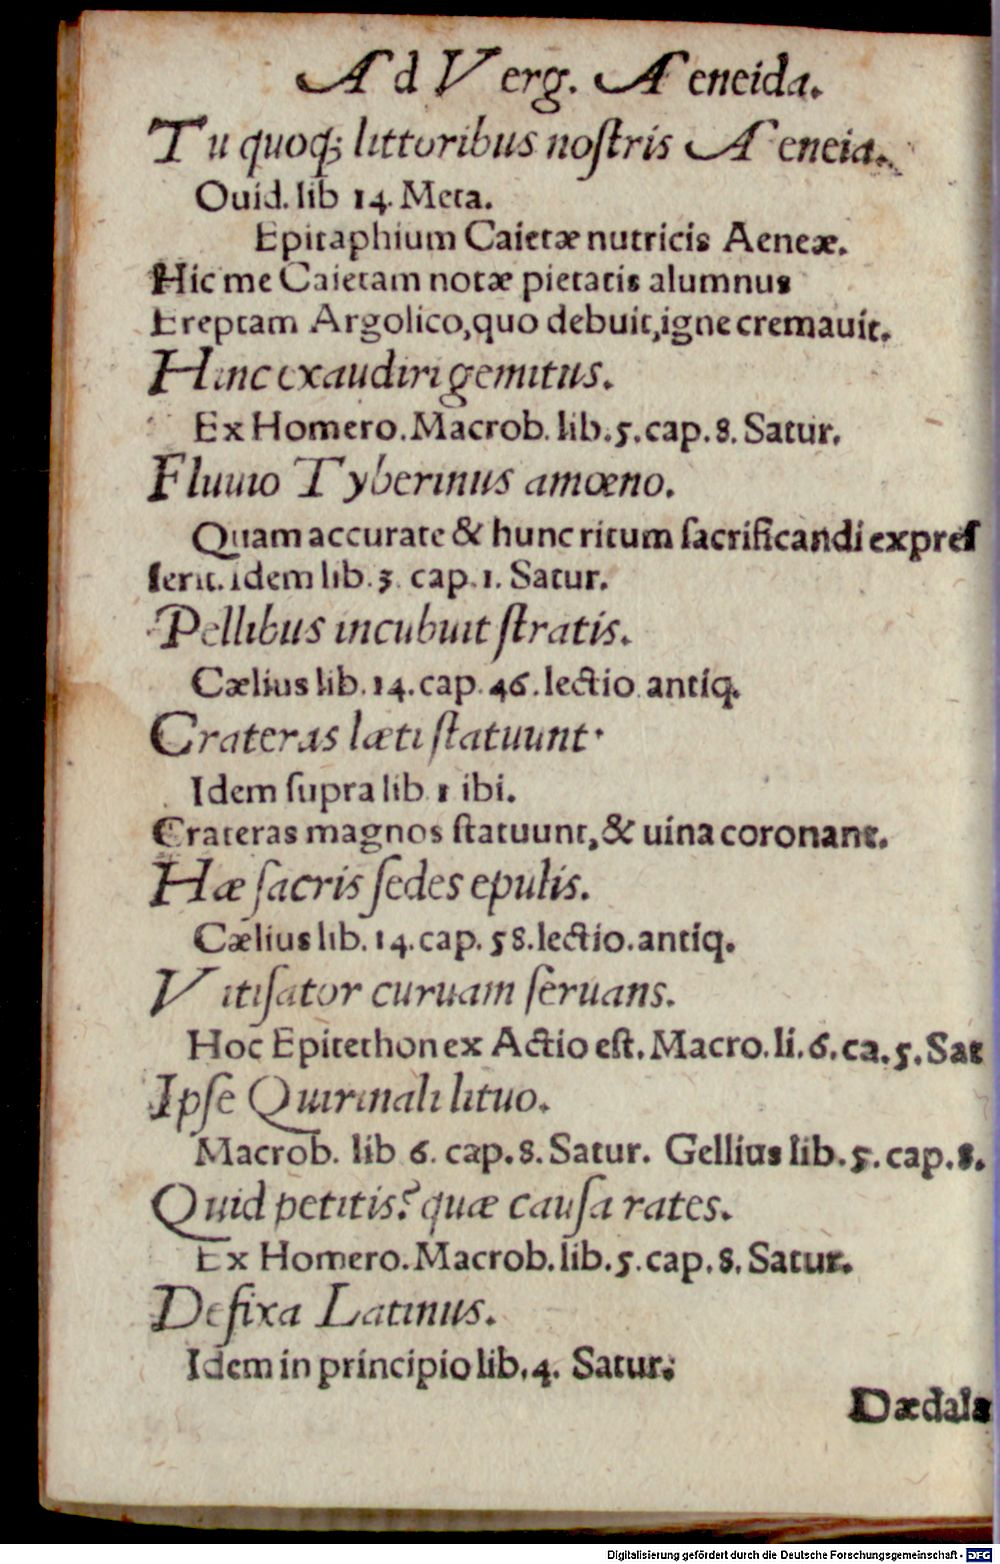 Ad Verg. Aeneida.
Tu quoq; littoribus noſtris Aeneia.
Ouid. lib 14. Meta.
Epitaphium Caietæ nutricis Aeneæ.
Hic me Caietam notæ pietatis alumnus
Ereptam Argolico, quo debuit, igne cremauit.
Hinc exaudiri gemitus.
Ex Homero. Macrob. lib. 5. cap. 8. Satur.
Fluuio Tyberinus amœno.
Quam accurate & hunc ritum ſacrificandi expreſ
ſerit. idem lib. 3. cap. 1. Satur.
Pellibus incubuit ſtratis.
Cælius lib. 14. cap. 46. lectio. antiq.
Crateras læti ſtatuunt·
Idem ſupra lib. 1 ibi.
Crateras magnos ſtatuunt, & uina coronant.
Hæ ſacris ſedes epulis.
Cælius lib. 14. cap. 58. lectio. antiq.
Vitiſator curuam ſeruans.
Hoc Epitethon ex Actio eſt. Macro. li. 6. ca. 5. Sat
Ipſe Quirinali lituo.
Macrob. lib 6. cap. 8. Satur. Gellius lib. 5. cap. 8.
Quid petitis? quæ cauſa rates.
Ex Homero. Macrob. lib. 5. cap. 8. Satur.
Defixa Latinus.
Idem in principio lib. 4. Satur.
Dædala
Digitalisierung gefördert durch die Deutsche Forschungsgemeinschaft - DFG